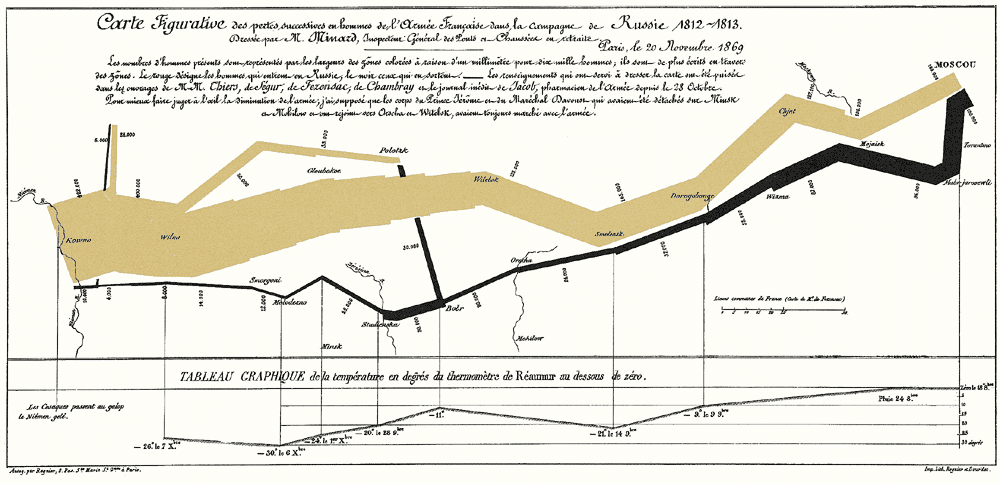 Carte Figurative des pertes successives en hommes de l'Armée Française dans la campagne de Russie 1812-1813.
Dressée par M. Minard, Inspecteur Général des Ponts et Chaussées en retraite
Paris, le 20 Novembre 1869
Les nombres d'hommes présents sont représentés par les largeurs des zones colorées à raison d'un millimètre pour dix mille hommes; ils sont de plus écrits en travers
des zones. Le rouge désigne les hommes qui entrent en Russie, le noir ceux qui en sortent. Les renseignements qui ont servi à dresser la carte ont été puisés
dans les ouvrages de M.M. Thiers, de Ségur, de Fezensac, de Chambray et le journal inédit de Jacob, pharmacien de l'Armée depuis le 28 Octobre.
Pour mieux faire juger à l'œil la diminution de l'armée, j'ai supposé que les corps du Prince Jérôme et du Maréchal Davoust qui avaient été détachés sur Minsk
et Mohilow et ont rejoint vers Orscha et Witebsk, avaient toujours marché avec l'armée.
MOSCOU
100.000
Tarantino
Malo-jarosewli
Mojaisk
Chjat
Wizma
Dorogobouge
Smolensk
Orscha
Mohilow
Witebsk
Polotzk
Gloubokoe
Bobr
Studienska
Minsk
Molodezno
Smorgoni
Wilna
Kowno
Niémen R.
6.000
22.000
422.000
400.000
33.000
30.000
20.000
50.000
28.000
12.000
14.000
8.000
4.000
10.000
24.000
37.000
55.000
96.000
145.000
Lieues communes de France (Carte de M. de Fezensac)
TABLEAU GRAPHIQUE de la température en degrés du thermomètre de Réaumur au dessous de zéro.
Les Cosaques passent au galop
le Niémen gelé.
− 26.° le 7 X.bre
− 30.° le 6 X.bre
− 24. le 1.er X.bre
− 20.° le 28 9.bre
− 11.°
− 21.° le 14 9.bre
− 9.° le 9 9.bre
Pluie 24 8.bre
Zéro le 18 8.bre
5
10
15
20
25
30 degrés
Autog. par Regnier, 8. Pas. S.te Marie S.t G.ain à Paris.
Imp. Lith. Regnier et Dourdet.